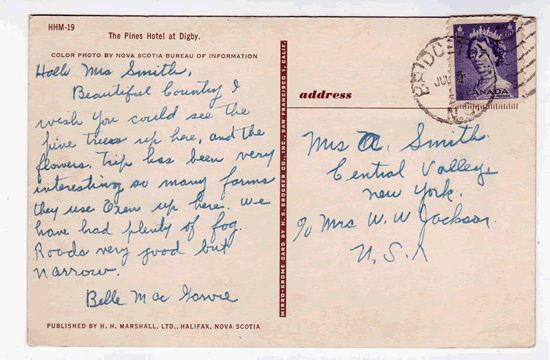 HHM-19
The Pines Hotel at Digby.
COLOR PHOTO BY NOVA SCOTIA BUREAU OF INFORMATION
Hello Mrs Smith.
Beautiful Country I
wish you could see the
fine trees up here, and the
flowers. Trip has been very
interesting so many farms
they use Oxen up here. We
have had plenty of fog.
Roads very good but
narrow.
Belle Mac
PUBLISHED BY H. H. MARSHALL, LTD., HALIFAX, NOVA SCOTIA
MIRRO-KROME CARD BY H. S. CROCKER CO., INC., SAN FRANCISCO 1, CALIF.
address
CANADA
Mrs A. Smith
Central Valley
New York.
c/o Mrs W. W Jackson
U.S.A